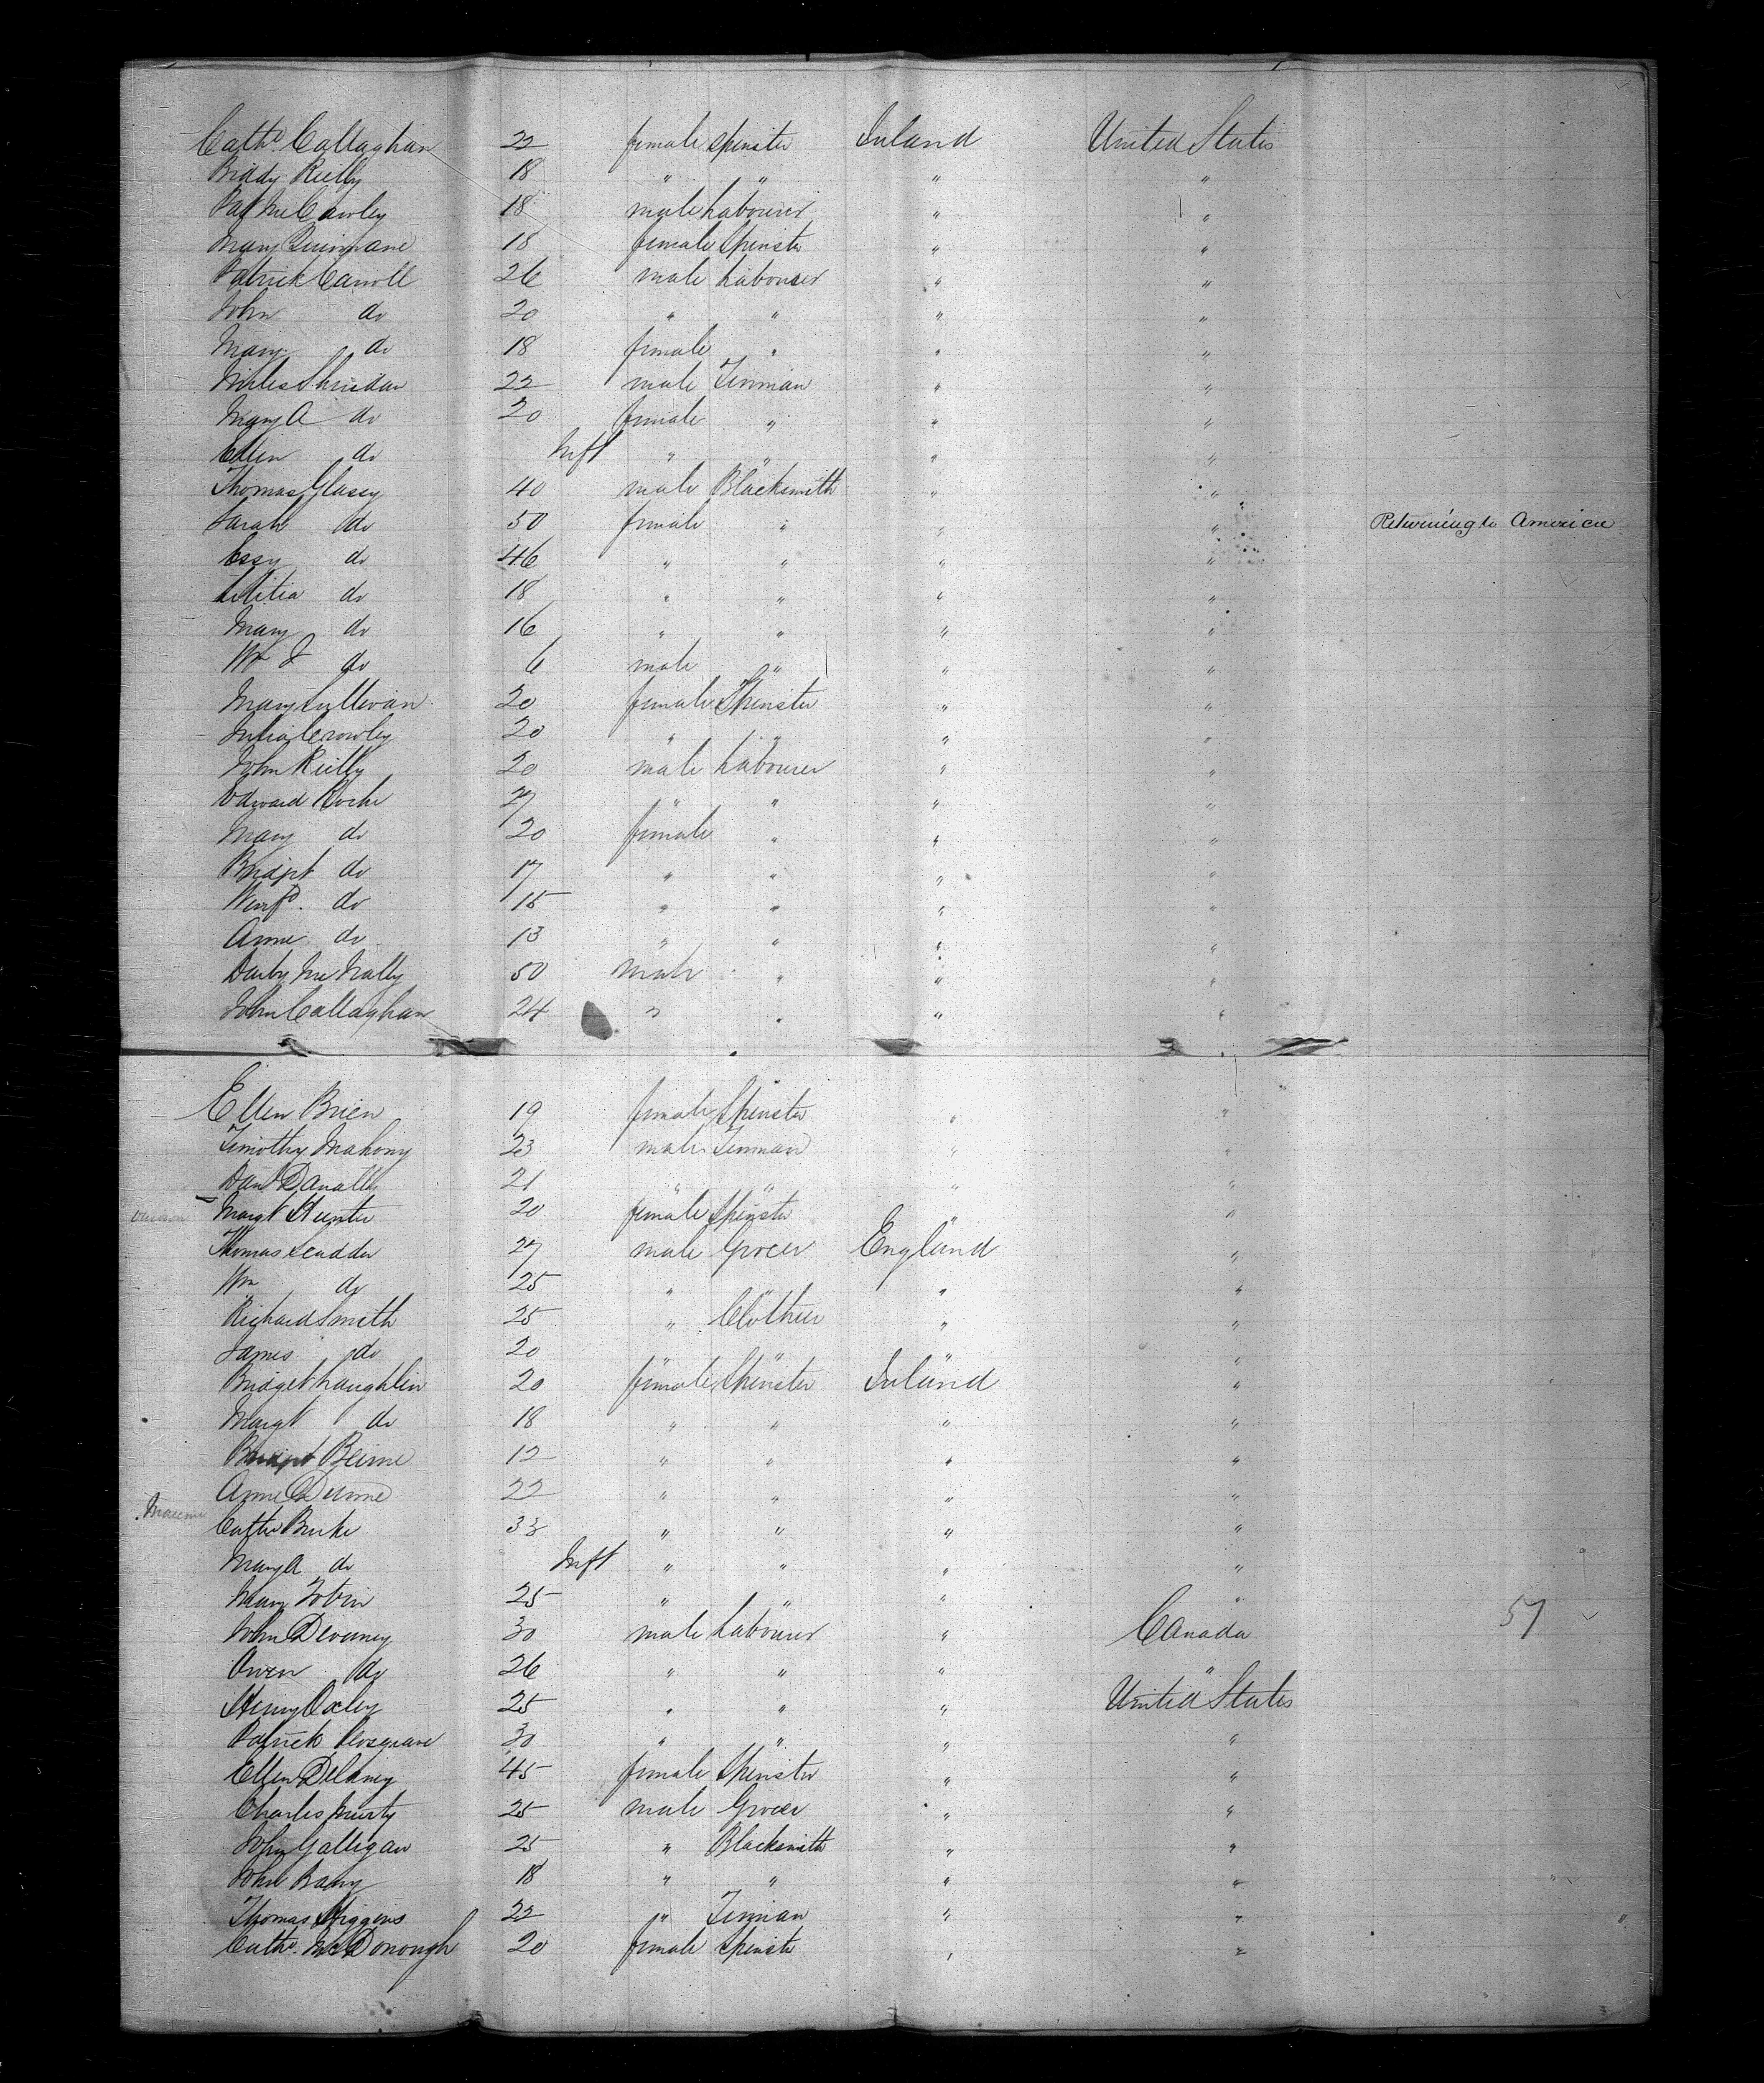 Cathe Callaghan 22 female Spinster Ireland United States
Biddy Reilly 18 " " " "
Pat McCawley 18 male Labourer " "
Mary 18 female Spinster " "
Patrick Carroll 26 male Labourer " "
John do 20 " " " "
Mary do 18 female " " "
Miles Sheridan 22 male Tinman " "
Mary A do 20 female " " "
Ellen do Inft " " " "
Thomas Glasey 40 male Blacksmith " "
Sarah do 50 female " " " Returning to America
Essy do 46 " " " "
Letitia do 18 " " " "
Mary do 16 " " " "
Wm J do 6 male " " "
Mary Sullivan 20 female Spinster " "
Julia Crowley 20 " " " "
John Reilly 20 male Labourer " "
Edward Roche 27 " " " "
Mary do 20 female " " "
Bridgt do 17 " " " "
Winfd. do 15 " " " "
Anne do 13 " " " "
Darby McNally 50 male " " "
John Callaghan 24 " " " "
Ellen Brien 19 female Spinster " "
Timothy Mahony 23 male Tinman " "
Danl 21 " " " "
Margt Hunter 20 female Spinster " "
Thomas Scudder 27 male Grocer England "
Wm do 25 " " " "
Richard Smith 25 " Clothier " "
James do 20 " " " "
Bridget Laughlin 20 female Spinster Ireland "
Margt do 18 " " " "
Bridgt Beirne 12 " " " "
Anne Dunne 22 " " " "
Cathe Burke 33 " " " "
Mary A do Inft " " " "
Mary Tobin 25 " " " "
John Devaney 30 male Labourer " Canada 57
Owen do 26 " " " "
Henry Oxley 25 " " " United States
Patrick Cosgrave 30 " " " "
Ellen Delaney 45 female Spinster " "
Charles Murty 25 male Grocer " "
John Galligan 25 " Blacksmith " "
John Barry 18 " " " "
Thomas Higgins 22 " Tinman " "
Cathe. McDonough 20 female Spinster " "